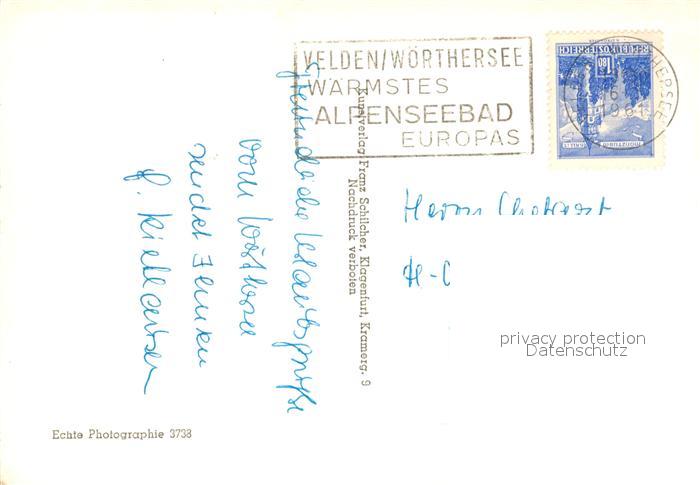 VELDEN/WÖRTHERSEE
WÄRMSTES
ALPENSEEBAD
EUROPAS
REPUBLIK ÖSTERREICH
Freundliche Urlaubsgrüße
vom Wörthersee
sendet Ihnen
Kunstverlag Franz Schilcher, Klagenfurt, Kramerg. 9
Nachdruck verboten
Herrn
H-C
privacy protection
Datenschutz
Echte Photographie 3738